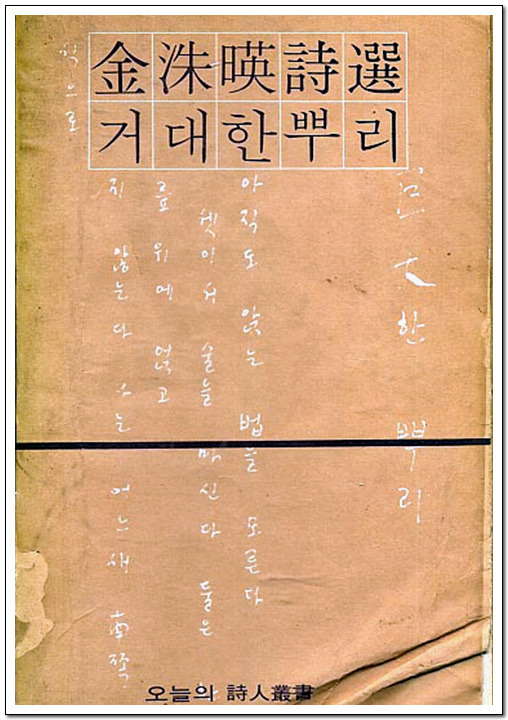 金洙暎詩選
거대한뿌리
巨大한 뿌리
아직도 앉는 법을 모른다
셋이서 술을 마신다 둘은
릎 위에 얹고
지 않는다 나는 어느새 南쪽
식으로
오늘의 詩人叢書